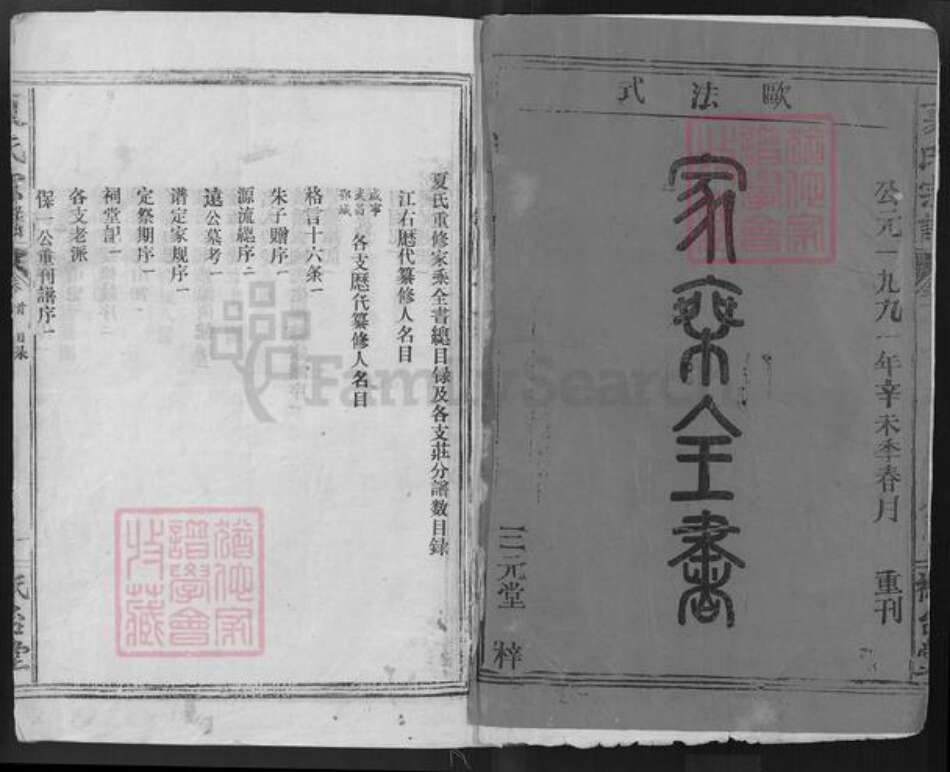 歐法式
公元一九九一年辛未季春月 重刊
家乘全書
三元堂 梓
夏氏重修家乘全書總目録及各支莊分譜数目録
江右歷代纂修人名目
咸寧
武昌
鄂城
各支歷代纂修人名目
格言十六条一
朱子贈序一
源流總序二
遠公墓考一
谱定家规序一
定祭期序一
祠堂記一
各支老派
保一公重刊譜序一
目录
FamilySearch